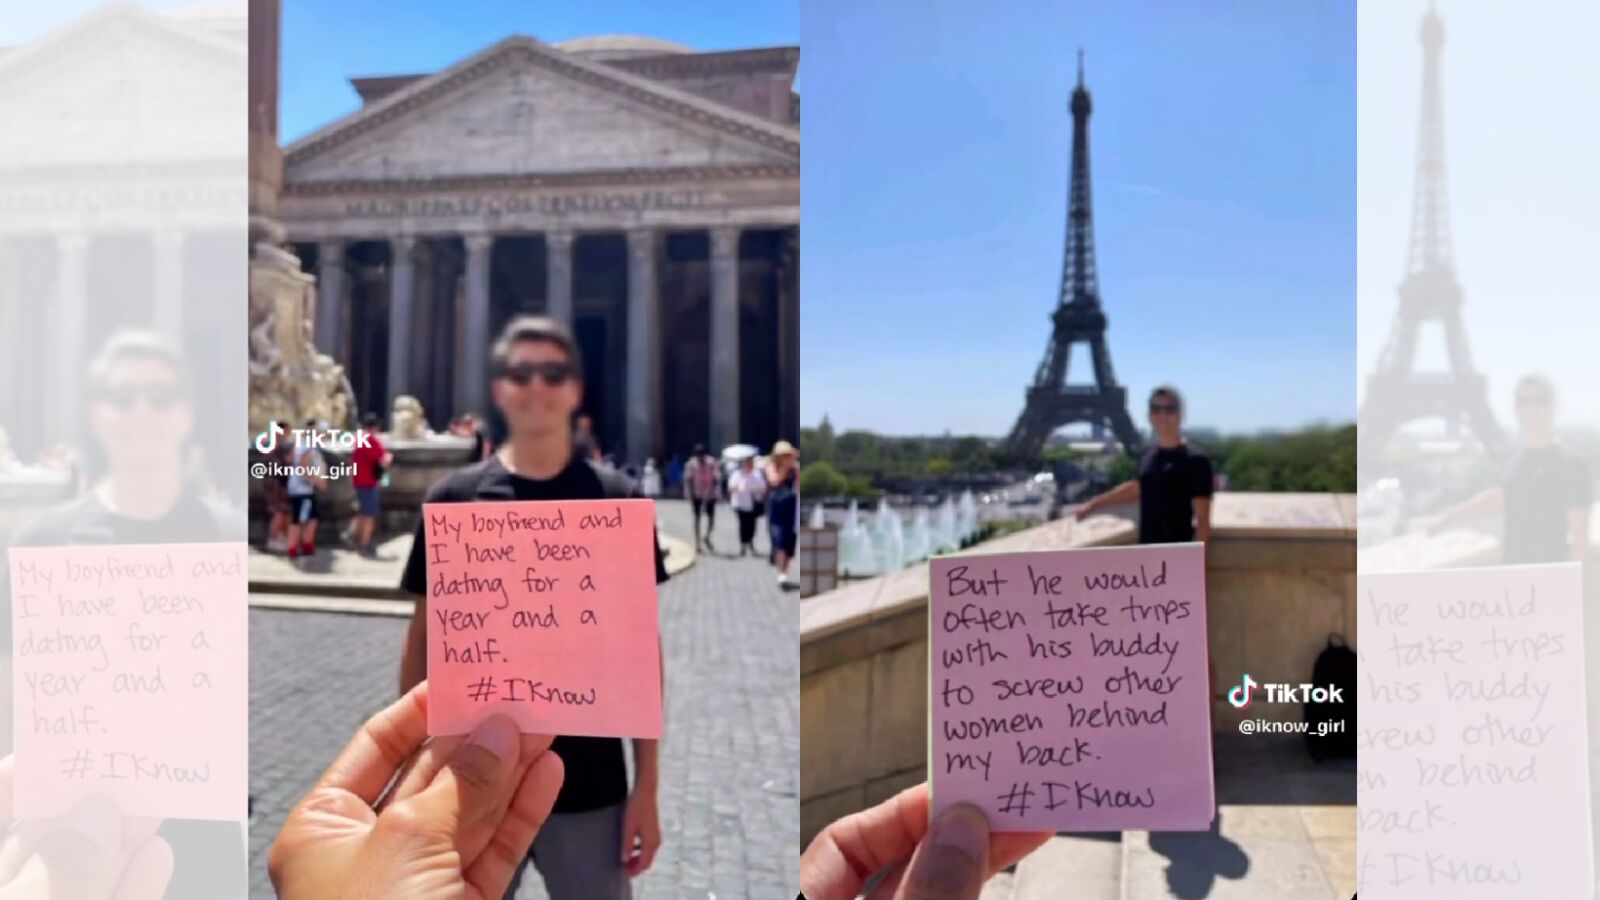 My boyfriend and
I have been
dating for a
year and a
half.
#IKnow
TikTok
@iknow_girl
But he would
often take trips
with his buddy
to screw other
women behind
my back.
#IKnow
TikTok
@iknow_girl
My boyfriend and
I have been
dating for a
year and a
half.
#IKnow
he would
take trips
his buddy
screw other
behind
back.
IKnow